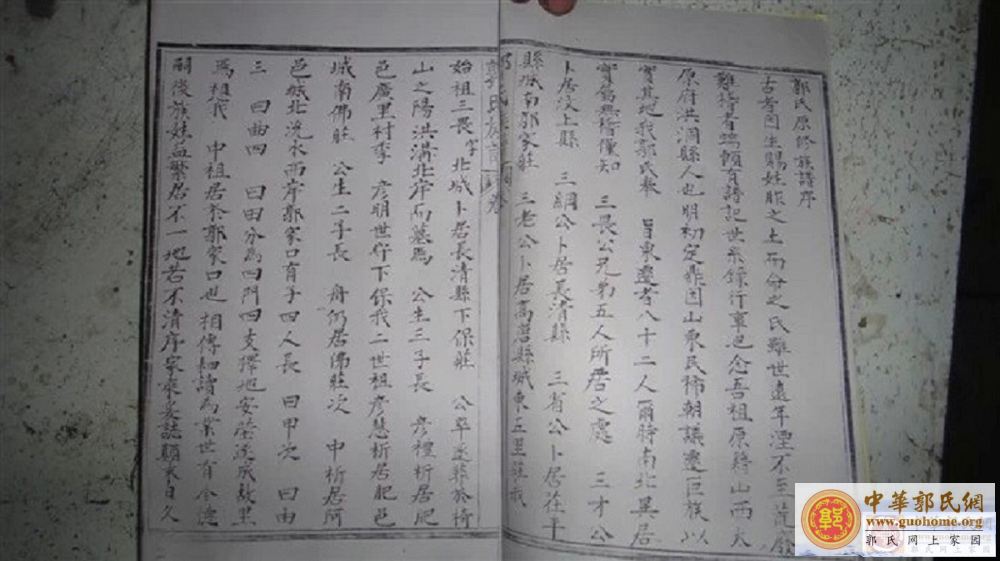 郭氏原修族譜序
古者因生賜姓胙之土而分之氏雖世遠年湮不至荒
難稽者端頼有譜記世系錄行事也念吾祖原籍山西太
原府洪洞縣人也明初定鼎因山東民稀朝議遷巨族以
實其地我郭氏奉 旨東遷者八十二人爾時南北異居
實爲無徵僅知 三畏公兄弟五人所居之處 三才公
卜居汶上縣 三綱公卜居長清縣 三省公卜居茌平
縣城南郭家莊 三老公卜居高唐縣城東五里莊我
始祖三畏字 北城卜居長清縣下保莊 公卒遂葬於
山之陽洪溝北岸而墓焉 公生三子長 彦禮析居肥
邑廣里村季 彦明世仍下保我二世祖彦慧析居肥邑
城南佛莊 公生二子長 舟仍居佛莊次 中析居阿
邑城北流水西岸郭家口育子四人長 曰甲次 曰由
三 曰曲四 曰田分爲四門四支擇地安塋遂成故里
焉祖我 中祖居於郭家口也相傳細讀爲業世有令德
嗣後族姓益繁居不一地若不清序家乘 誌顛末日久
中華郭氏網
www.guohome.org
郭氏网上家园